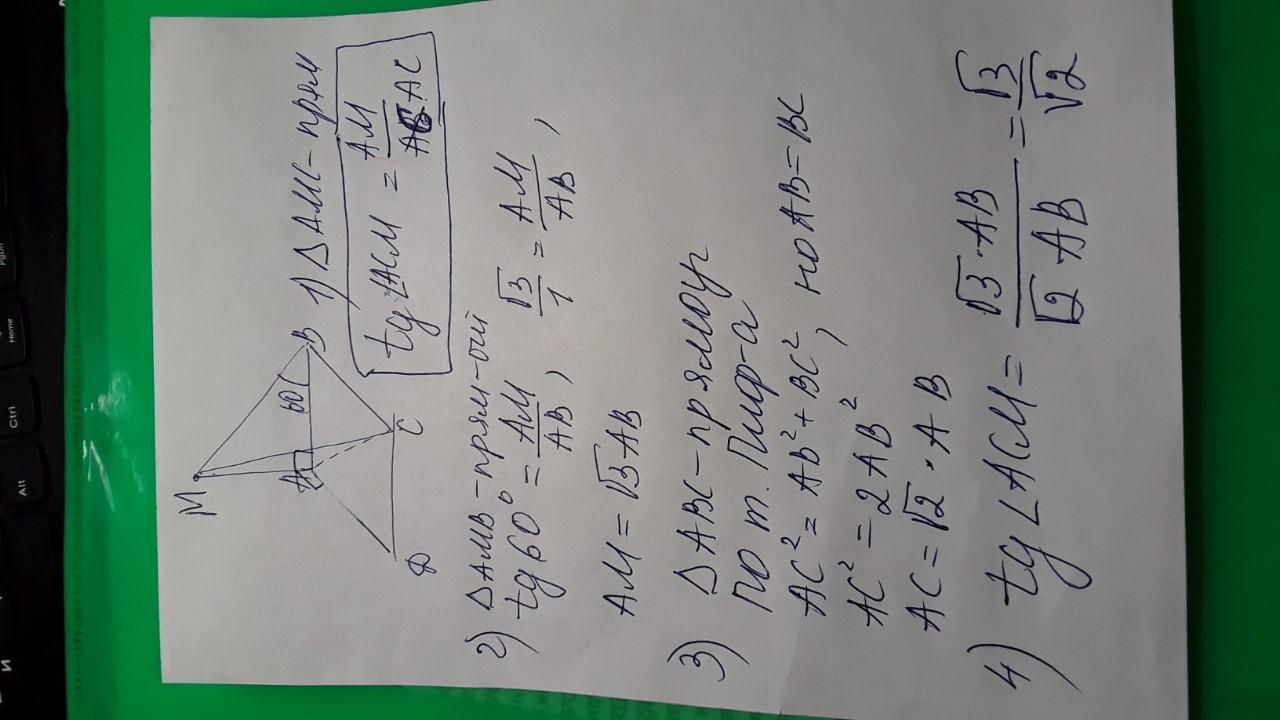 M
60°
A
B
C
D
1) ΔAMC - прям
tg∠ACM = AM/AC
2) ΔAMB - прям-ый
tg60° = AM/AB, √3/1 = AM/AB,
AM = √3AB
3) ΔABC - прямоуг
По т. Пифа-а
AC² = AB² + BC², но AB = BC
AC² = 2AB²
AC = √2 · AB
4) tg∠ACM = √3·AB/√2·AB = √3/√2
И
Alt
Ctrl
Home
PgUp